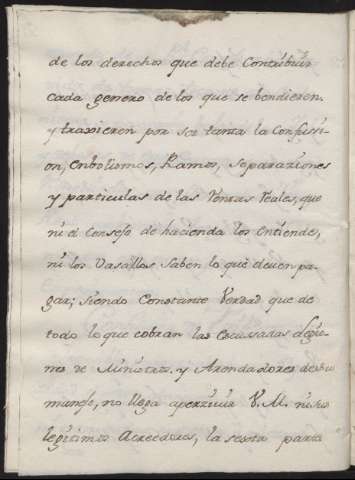 de los derechos que debe Contribuir
cada genero de los que se bendieren
y traxieren por ser tanta la Confussi-
on, enbolismos, Ramos, separaziones
y particulas de las Rentas Reales, que
ni el Consejo de hacienda los entiende,
ni los Vasallos saben lo que deven pa-
gar; siendo Constante Verdad que de
todo lo que cobran las
nes de Ministros y Arrendadores de su
manejo, no llega a percivir V. M. ni sus
legitimos Acreedores, la sesta parte